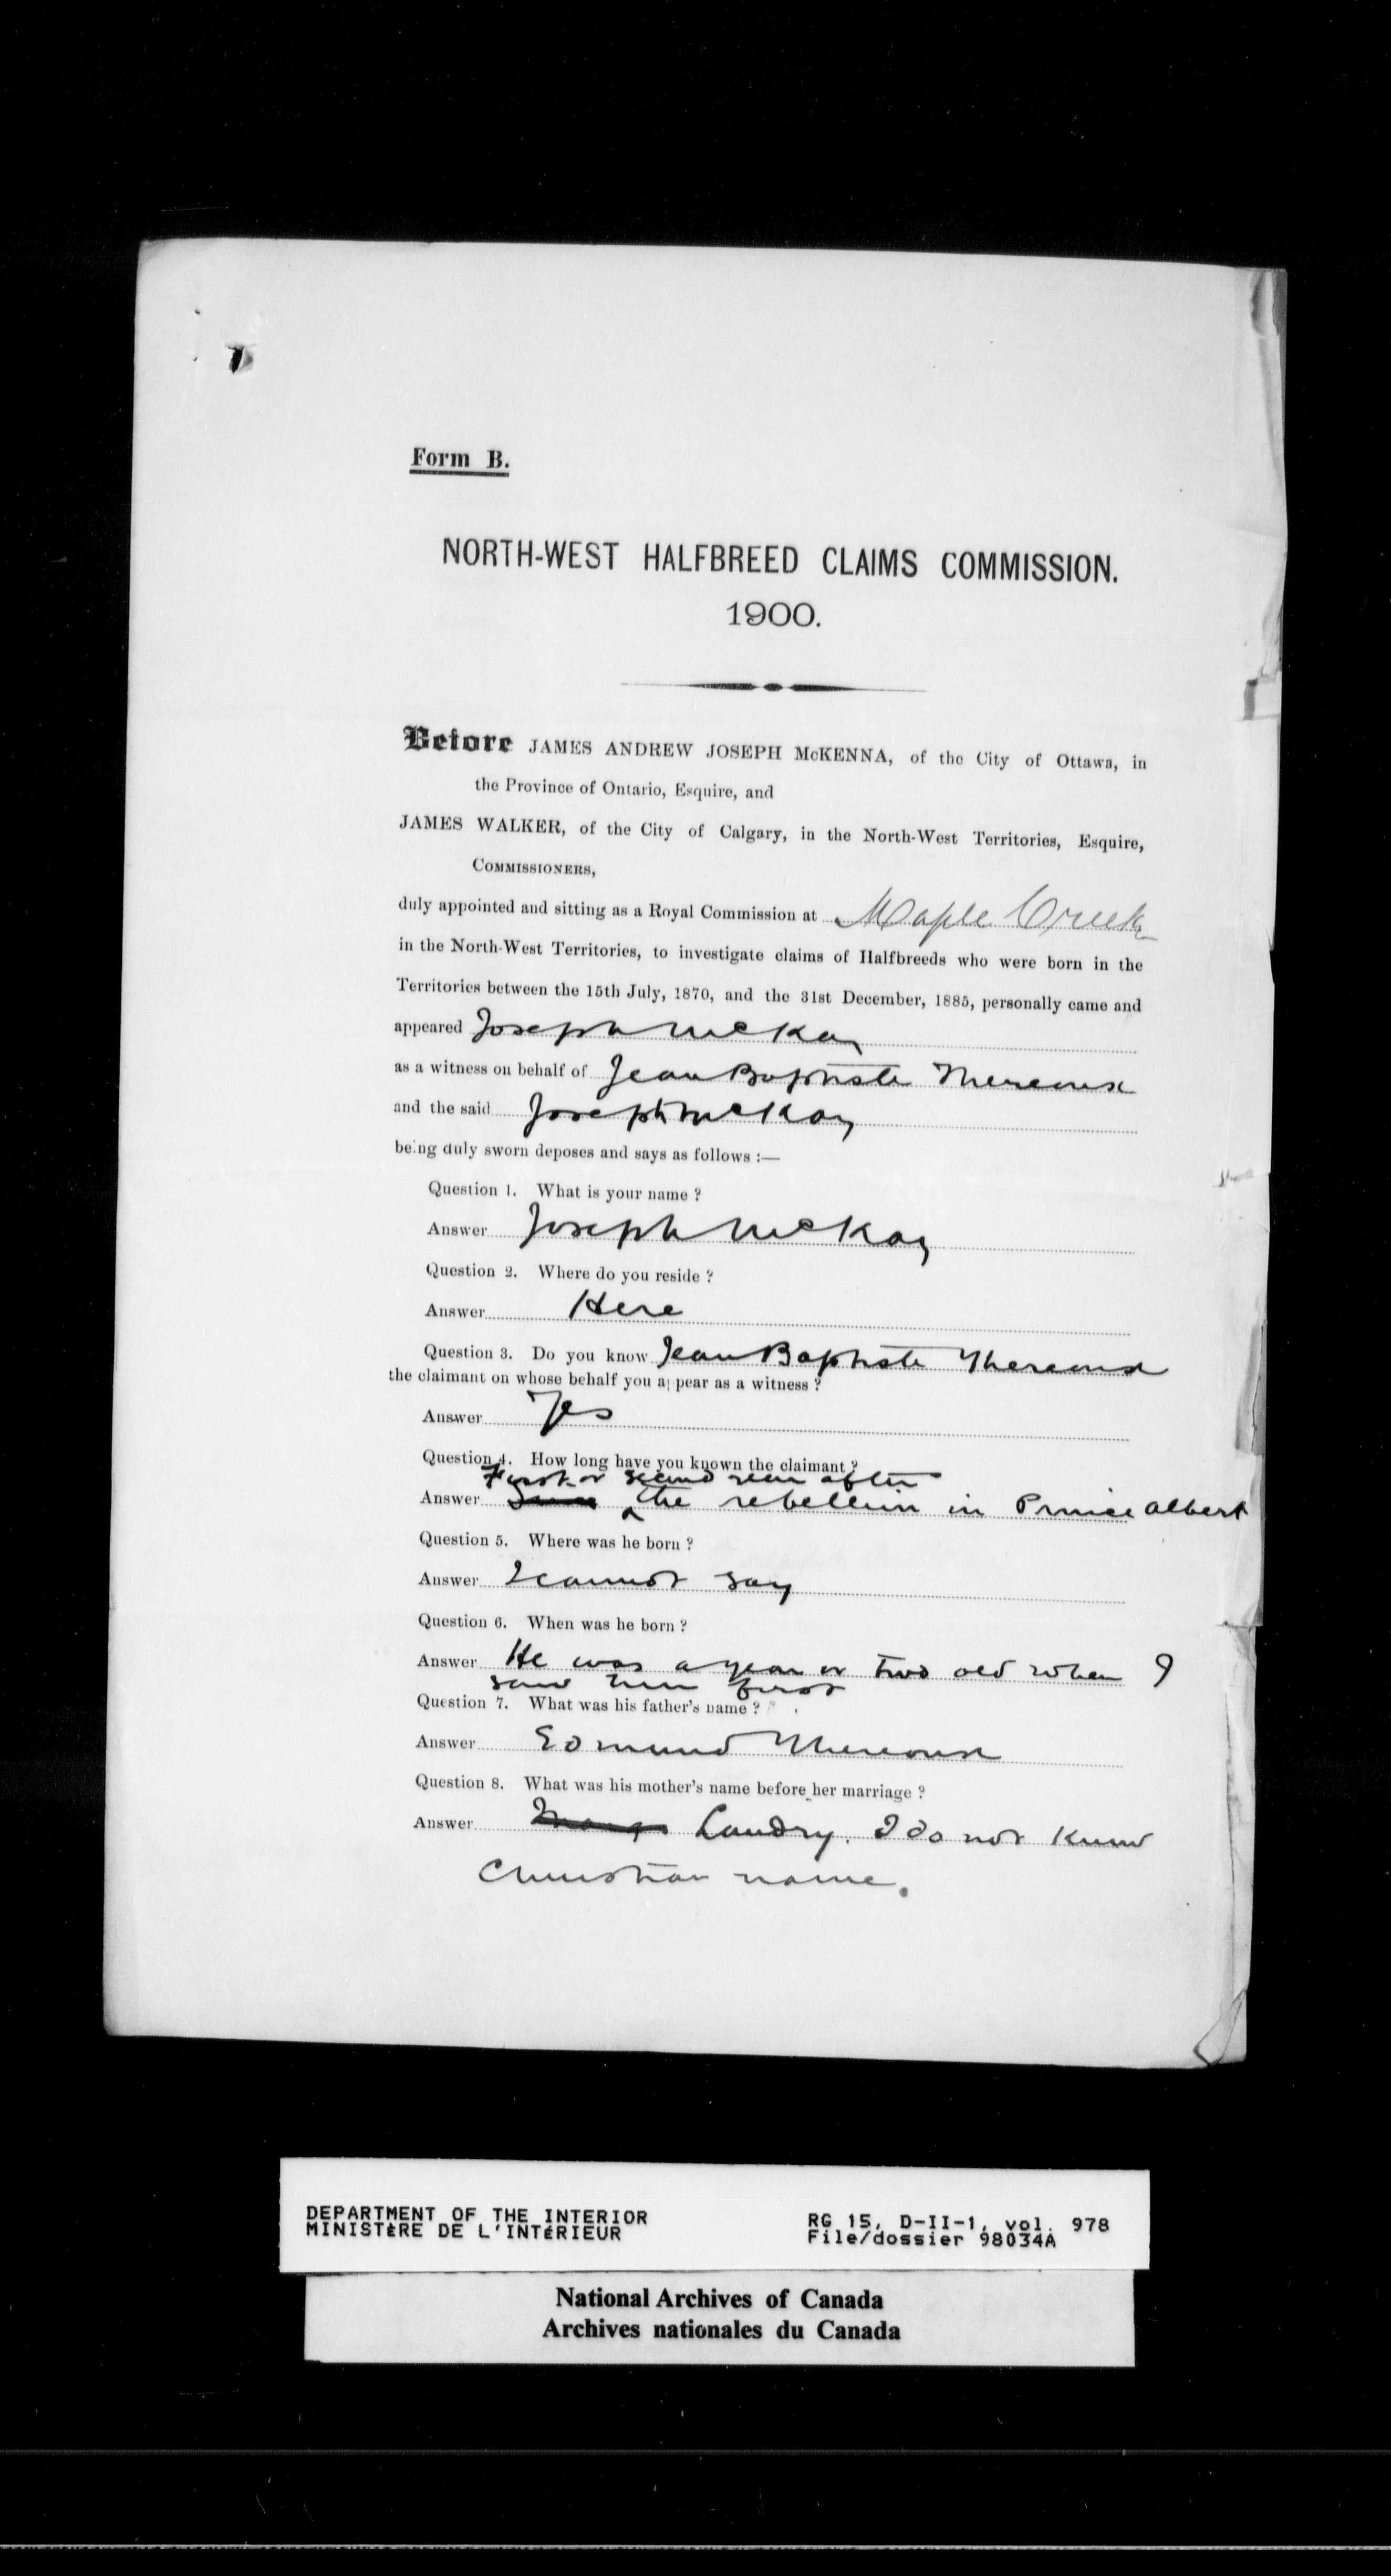 Form B.
NORTH-WEST HALFBREED CLAIMS COMMISSION.
1900.
Before JAMES ANDREW JOSEPH McKENNA, of the City of Ottawa, in
the Province of Ontario, Esquire, and
JAMES WALKER, of the City of Calgary, in the North-West Territories, Esquire,
COMMISSIONERS,
duly appointed and sitting as a Royal Commission at Maple Creek
in the North-West Territories, to investigate claims of Halfbreeds who were born in the
Territories between the 15th July, 1870, and the 31st December, 1885, personally came and
appeared Joseph McKay
as a witness on behalf of Jean Baptiste
and the said Joseph McKay
being duly sworn deposes and says as follows :—
Question 1. What is your name ?
Answer Joseph McKay
Question 2. Where do you reside ?
Answer Here
Question 3. Do you know Jean Baptiste
the claimant on whose behalf you appear as a witness ?
Answer Yes
Question 4. How long have you known the claimant ?
First or second year after
Answer the rebellion in Prince Albert
Question 5. Where was he born ?
Answer I cannot say
Question 6. When was he born ?
Answer He was a year or two old when I
saw him first
Question 7. What was his father's name ?
Answer Edmund
Question 8. What was his mother's name before her marriage ?
Answer Landry. I do not know
Christian name.
DEPARTMENT OF THE INTERIOR
MINISTÈRE DE L'INTÉRIEUR
RG 15, D-II-1, vol. 978
File/dossier 98034A
National Archives of Canada
Archives nationales du Canada